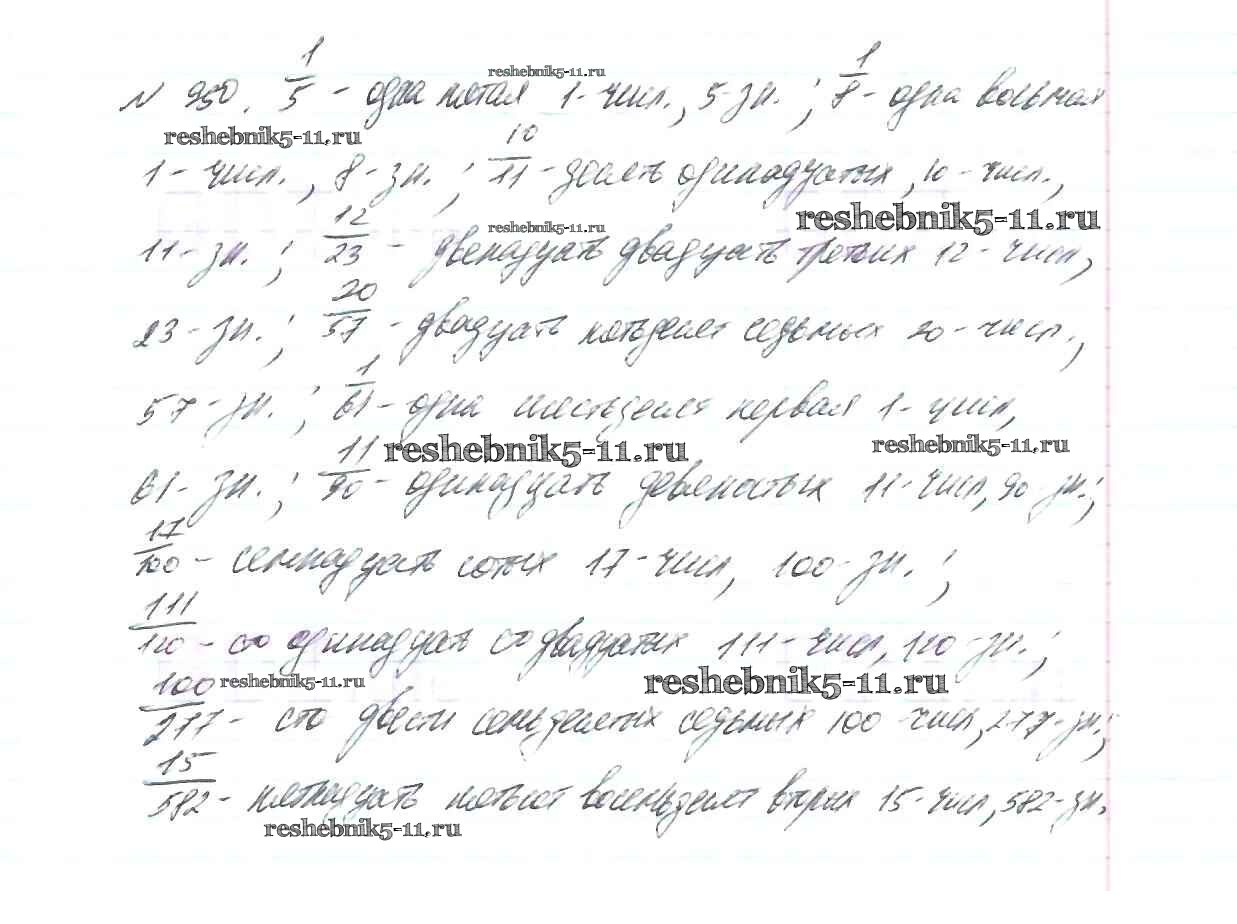 № 950. 1/5 - одна пятая 1-числ., 5-зн.; 1/8 - одна восьмая
reshebnik5-11.ru
reshebnik5-11.ru
1-числ., 8-зн.; 10/11 - десять одинадцатых, 10-числ.,
reshebnik5-11.ru
reshebnik5-11.ru
11-зн.; 12/23 - двенадцать двадцать третьих 12-числ,
23-зн.; 20/57 - двадцать пятьдесят седьмых 20-числ.,
57-зн.; 1/61 - одна шестьдесят первая 1-числ,
reshebnik5-11.ru
reshebnik5-11.ru
61-зн.; 11/90 - одинадцать девяностых 11-числ, 90-зн.;
17/100 - семнадцать сотых 17-числ, 100-зн.;
111/120 - сто одинадцать стодвадцатых 111-числ, 120-зн.;
reshebnik5-11.ru
reshebnik5-11.ru
100/277 - сто двести семьдесятых седьмых 100 числ, 277-зн.;
15/582 - пятнадцать пятьсот восемьдесят вторых 15-числ, 582-зн.
reshebnik5-11.ru